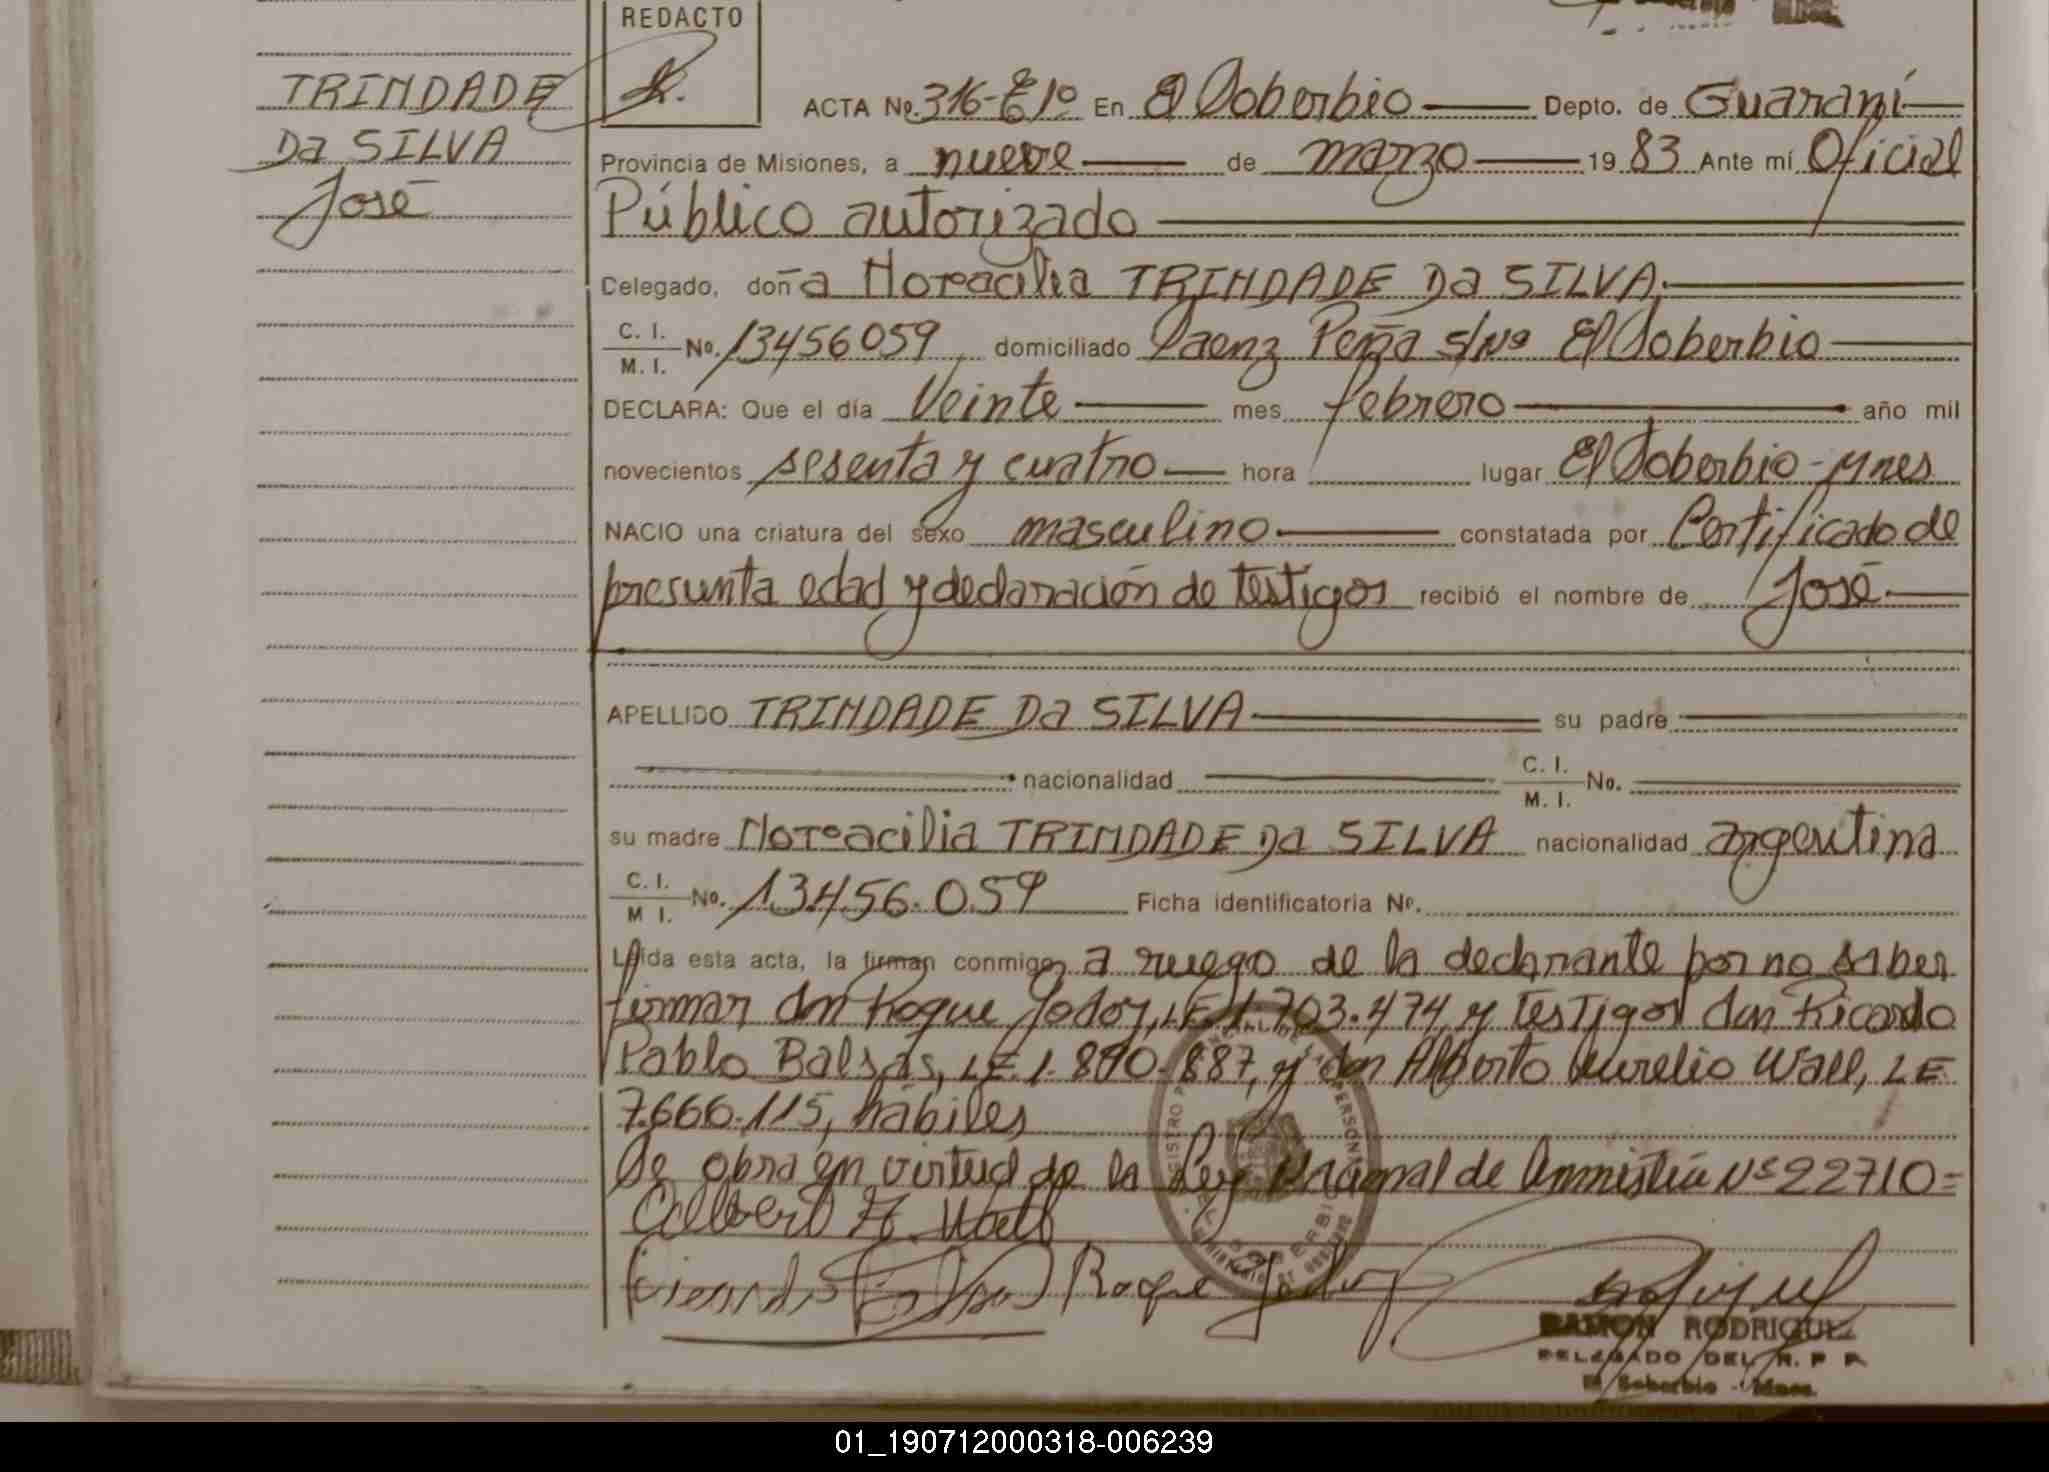 REDACTO
TRINDADE
Da SILVA
José
ACTA No. 316-Eº1º En El Soberbio Depto. de Guaraní
Provincia de Misiones, a nueve de marzo 19 83 Ante mí Oficial
Público autorizado
Celegado, doña Horacilia TRINDADE Da SILVA,
C. I.
M. I. No. 13456059, domiciliado Saenz Peña s/nº El Soberbio
DECLARA: Que el día Veinte mes febrero año mil
novecientos sesenta y cuatro hora lugar El Soberbio-Mnes
NACIO una criatura del sexo masculino constatada por Certificado de
presunta edad y declaración de testigos recibió el nombre de José
APELLIDO TRINDADE Da SILVA su padre
nacionalidad C. I. M. I. No.
su madre Horacilia TRINDADE Da SILVA nacionalidad argentina
C. I.
M I. No. 13.456.059 Ficha identificatoria No.
Leída esta acta, la firman conmigo, a ruego de la declarante por no saber
firmar don Roque Godoy, LE 1.703.474, y testigos don Ricardo
Pablo Balsas, LE. 1.890.887, y don Alberto Aurelio Wall, LE
7.666.115, hábiles
Se obra en virtud de la Ley Nacional de Amnistía Nº 22710=
Albert A. Wall
Ricardo Balsas Roque Godoy
RAMON RODRIGUEZ
DELEGADO DEL R. P. P.
El Soberbio - Mnes.
01_190712000318-006239